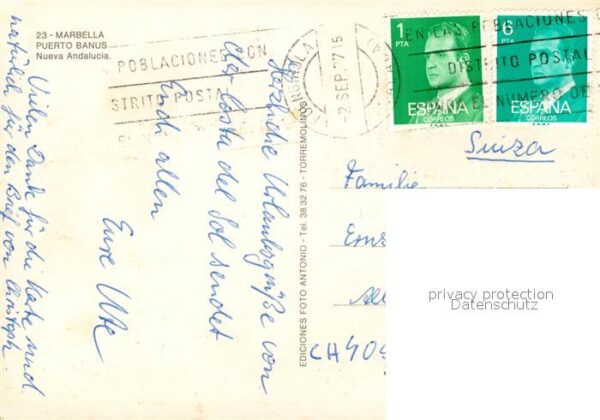 23 - MARBELLA
PUERTO BANUS
Nueva Andalucia.
POBLACIONES CON
STRITO POSTAL
-2.SEP.-7 15
EN LAS POBLACIONES
DISTRITO POSTAL
EL NUMERO DE
1
PTA
ESPAÑA
CORREOS
6
PTA
ESPAÑA
CORREOS
Herzliche Urlaubsgrüße von
der Costa del Sol sendet
Euch allen
Eure Ute
Vielen Dank für die Karte und
natürlich für den Brief von Christoph.
EDICIONES FOTO ANTONIO - Tel. 38 32 76 - TORREMOLINOS
Suiza
Familie
CH 40
privacy protection
Datenschutz